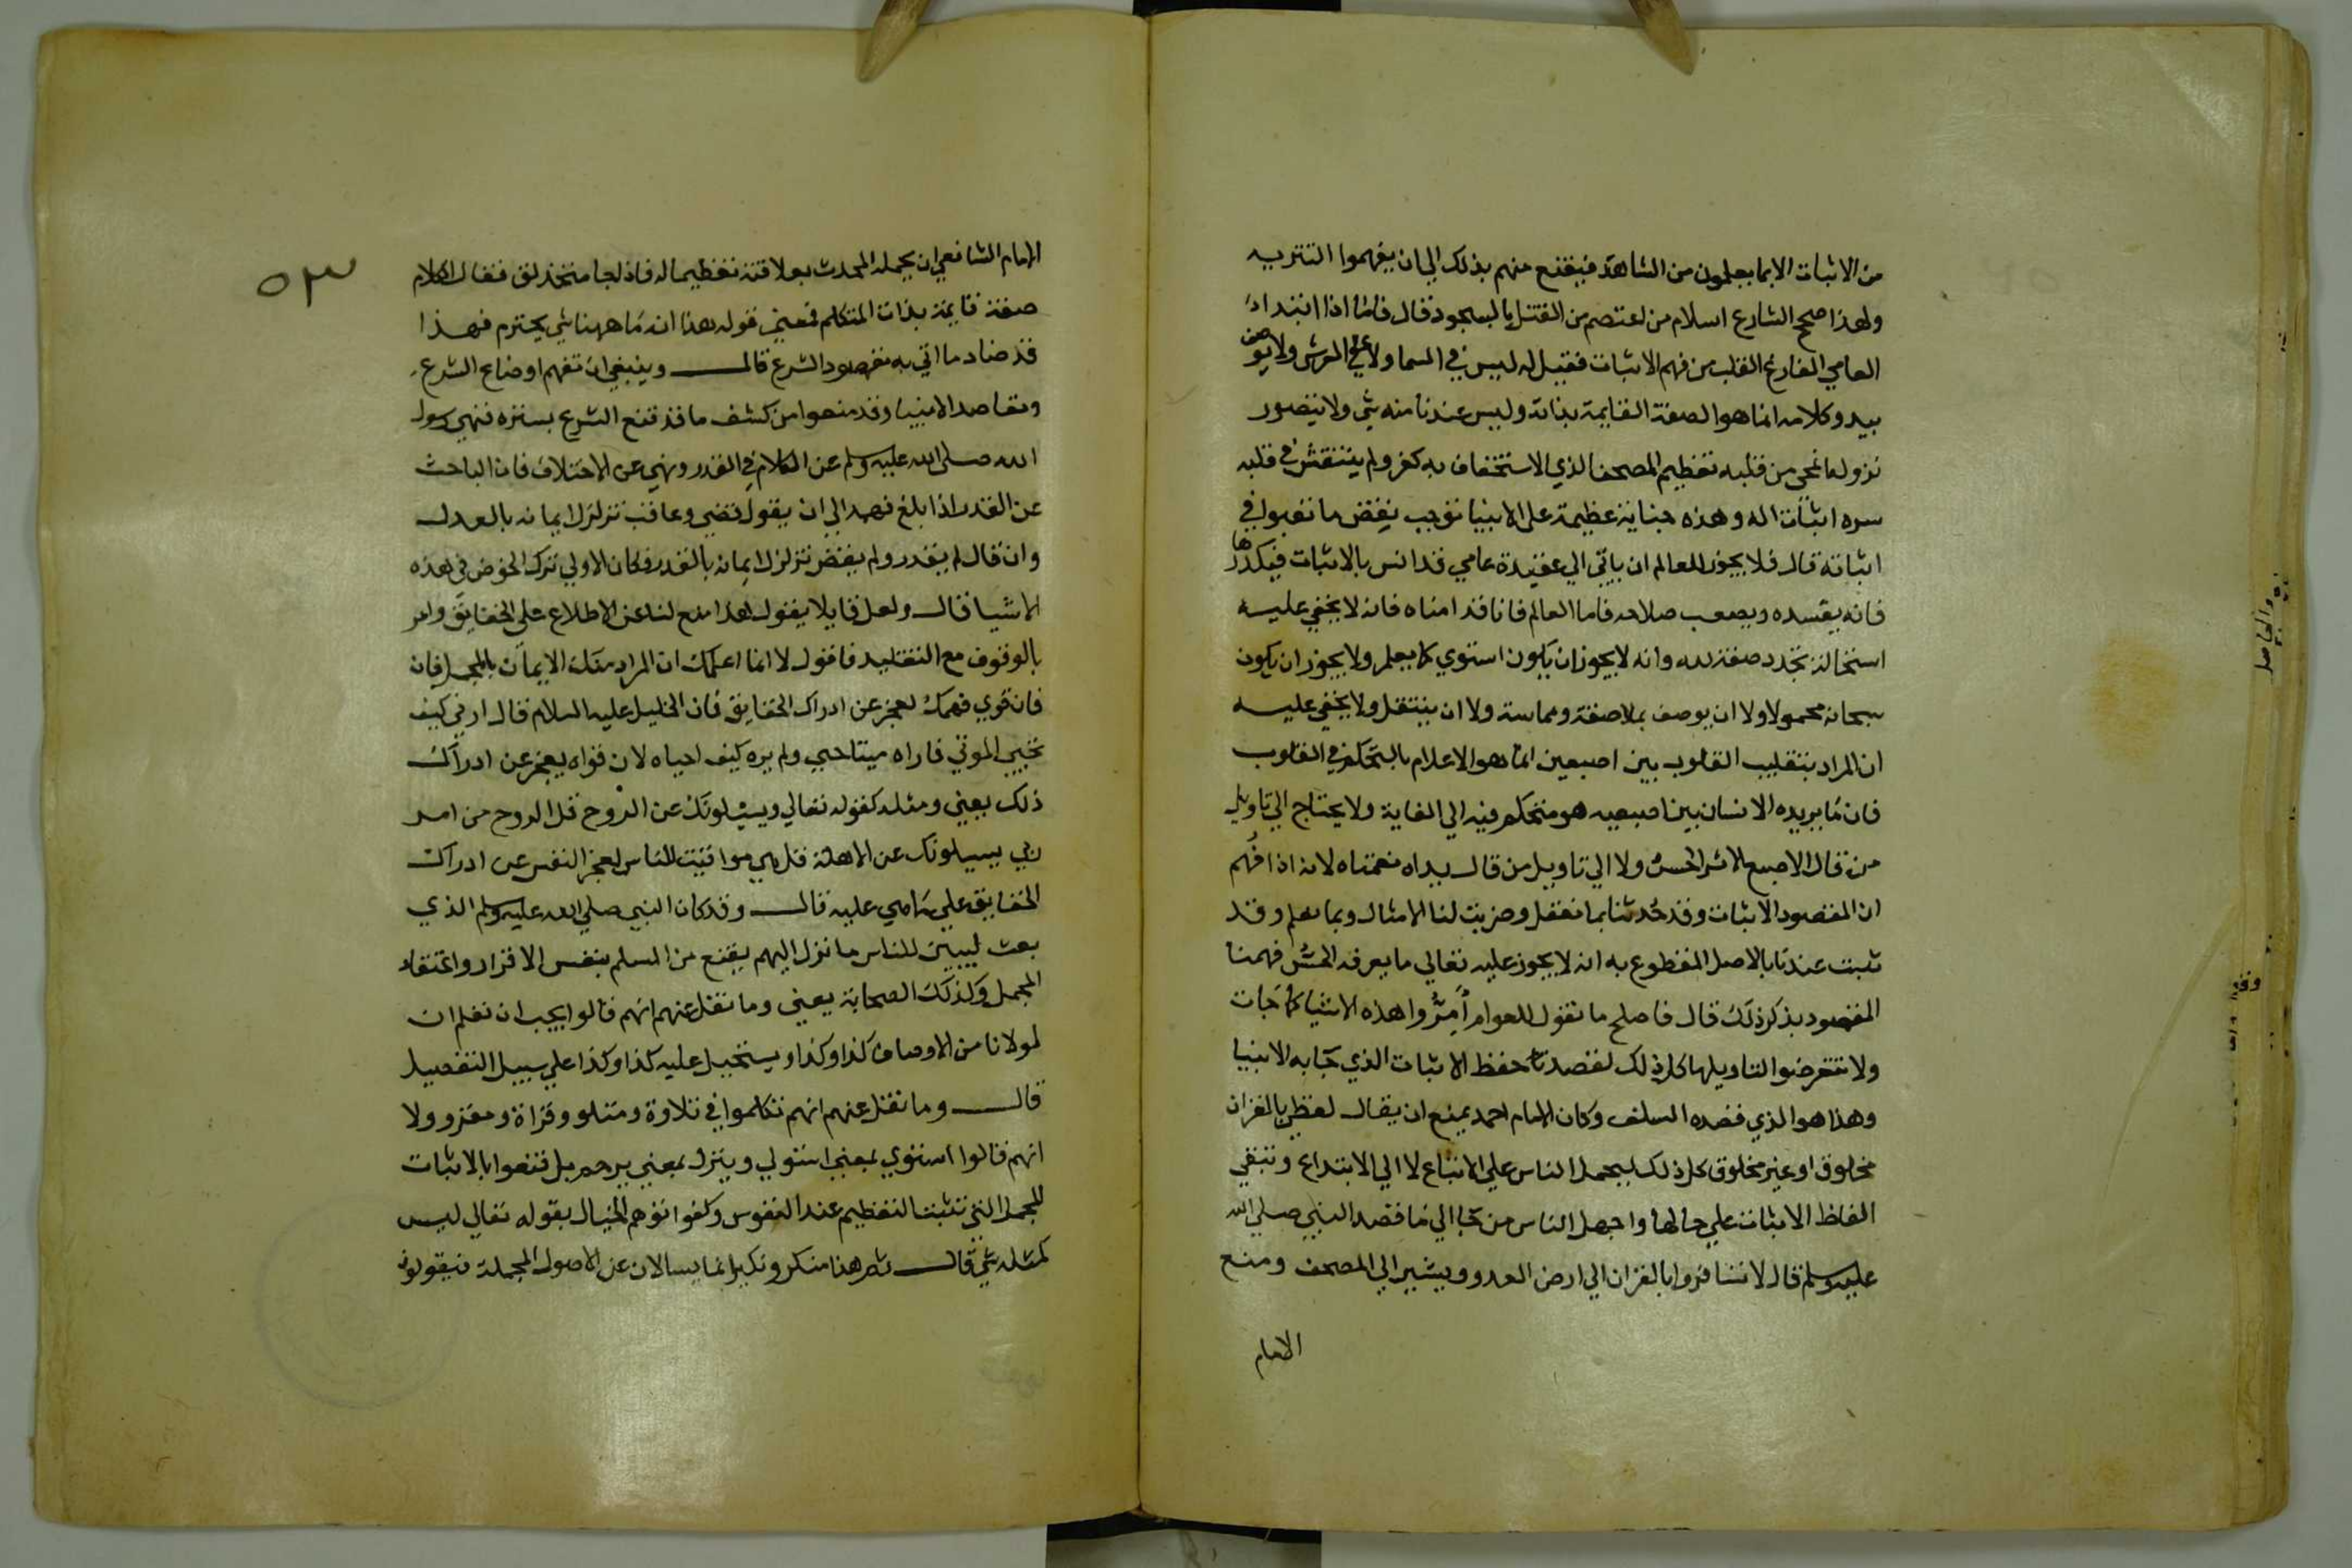 من الاثبات الا بما يعلمون من الشاهد فيقنع منهم بذلك الي ان يفهموا التنزيه
ولهذا صحح الشارع اسلام من اعتصم من القتل بالسجود قال فاما اذا ابتدا
العامي الفارغ القلب من فهم الاثبات فقيل له ليس في السما ولا علي العرش ولا يوصف
بيد وكلامه انما هو الصفة القايمة بذاته وليس عندنا منه شي ولا يتصور
نزوله انمحي من قلبه تعظيم المصحف الذي الاستخفاف به كفر ولم ينتقش في قلبه
سره اثبات اله وهذه جناية عظيمة علي الانبيا توجب نقض ما تعبوا في
اثباته قال فلا يجوز للعالم ان ياتي الي عقيدة عامي قد انس بالاثبات فيكدرها
فانه يفسده ويصعب صلاحه فاما العالم فانا قد امناه فانه لا يخفي عليه
استحالة تجدد صفة لله وانه لا يجوز ان يكون استوي كما يعلم ولا يجوز ان يكون
سبحانه محمولا ولا ان يوصف بملاصقة ومماسة ولا ان ينتقل ولا يخفي عليه
ان المراد بتقليب القلوب بين اصبعين انما هو الاعلام بالتحكم في القلوب
فان ما يريده الانسان بين اصبعيه هو متحكم فيه الي الغاية ولا يحتاج الي تاويل
من قال الاصبع الاثر الحسن ولا الي تاويل من قال يداه نعمتاه لانه اذا فهم
ان المقصود الاثبات وقد حدثنا بما نعقل وضربت لنا الامثال وبما نعلم وقد
ثبت عندنا بالاصل المقطوع به انه لا يجوز عليه تعالي ما يعرفه الحس فهمنا
المقصود بذكر ذلك قال فاصلح ما نقول للعوام أمرُّوا هذه الاشيا كما جات
ولا تتعرضوا لتاويلها كل ذلك لقصدنا حفظ الاثبات الذي جا به الانبيا
وهذا هو الذي قصده السلف وكان الامام احمد يمنع ان يقال لفظي بالقران
مخلوق او غير مخلوق كل ذلك ليحمل الناس علي الاتباع لا الي الابتداع وتبقي
الفاظ الاثبات علي حالها واجهل الناس من جا الي ما قصد النبي صلي الله
عليه وسلم قال لا تسافروا بالقران الي ارض العدو ويشير الي المصحف ومنع
الامام
٥٣
الامام الشافعي ان يحمله المحدث بعلاقته تعظيما له فاذا جا متحذلق فقال الكلام
صفة قايمة بذات المتكلم فمعني قوله هذا انه ما ههنا شي يحترم فهذا
قد ضاد ما اتي به مقصود الشرع قال وينبغي ان تفهم اوضاع الشرع
ومقاصد الانبيا وقد منعوا من كشف ما قد قنع الشرع بستره فنهي رسول
الله صلي الله عليه وسلم عن الكلام في القدر ونهي عن الاختلاف فان الباحث
عن القدر اذا بلغ فهمه الي ان يقول قضي وعاقب تزلزل ايمانه بالعدل
وان قال لم يقدر ولم يقض تزلزل ايمانه بالقدر فكان الاولي ترك الخوض في هذه
الاشيا قال ولعل قايلا يقول هذا منع لنا عن الاطلاع علي الحقايق وامر
بالوقوف مع التقليد فاقول لا انما اعلمك ان المراد منك الايمان بالمجمل فان
فان قوي فهمك لعجز عن ادراك الحقايق فان الخليل عليه السلام قال ارني كيف
تحيي الموتي فاراه ميتا حيي ولم يره كيف احياه لان قواه يعجز عن ادراك
ذلك يعني ومثله كقوله تعالي ويسيلونك عن الروح قل الروح من امر
ربي يسيلونك عن الاهلة قل هي مواقيت للناس لعجز النفس عن ادراك
الحقايق علي ما هي عليه قال وقد كان النبي صلي الله عليه وسلم الذي
بعث ليبين للناس ما نزل اليهم يقنع من المسلم بنفس الاقرار واعتقاد
المجمل وكذلك الصحابة يعني وما نقل عنهم انهم قالوا يجب ان نعلم ان
لمولانا من الاوصاف كذا وكذا ويستحيل عليه كذا وكذا علي سبيل التفصيل
قال وما نقل عنهم انهم تكلموا في تلاوة ومتلو وقراة ومقرو ولا
انهم قالوا استوي بمعني استولي وينزل بمعني يرحم بل قنعوا بالاثبات
للجمل التي تثبت التعظيم عند النفوس وكفوا توهم الخيال بقوله تعالي ليس
كمثله شي قال ثم هذا منكر ونكير انما يسالان عن الاصول المجملة فيقولون